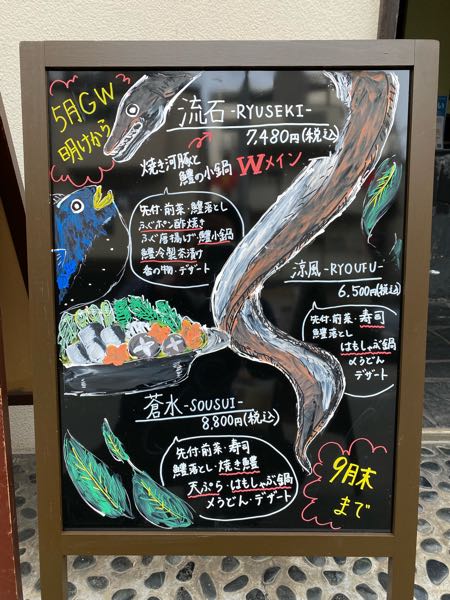 5月GW
明けから
流石-RYUSEKI-
7,480円(税込)
焼き河豚と
鱧の小鍋
Wメイン
先付・前菜・鱧落とし
ふぐポン酢焼き
ふぐ唐揚げ・鱧小鍋
鱧冷製茶漬け
香の物・デザート
涼風-RYOUFU-
6,500円(税込)
先付・前菜・寿司
鱧落とし
はもしゃぶ鍋
〆うどん
デザート
蒼水-SOUSUI-
8,800円(税込)
先付・前菜・寿司
鱧落とし・焼き鱧
天ぷら・はもしゃぶ鍋
〆うどん・デザート
9月末
まで